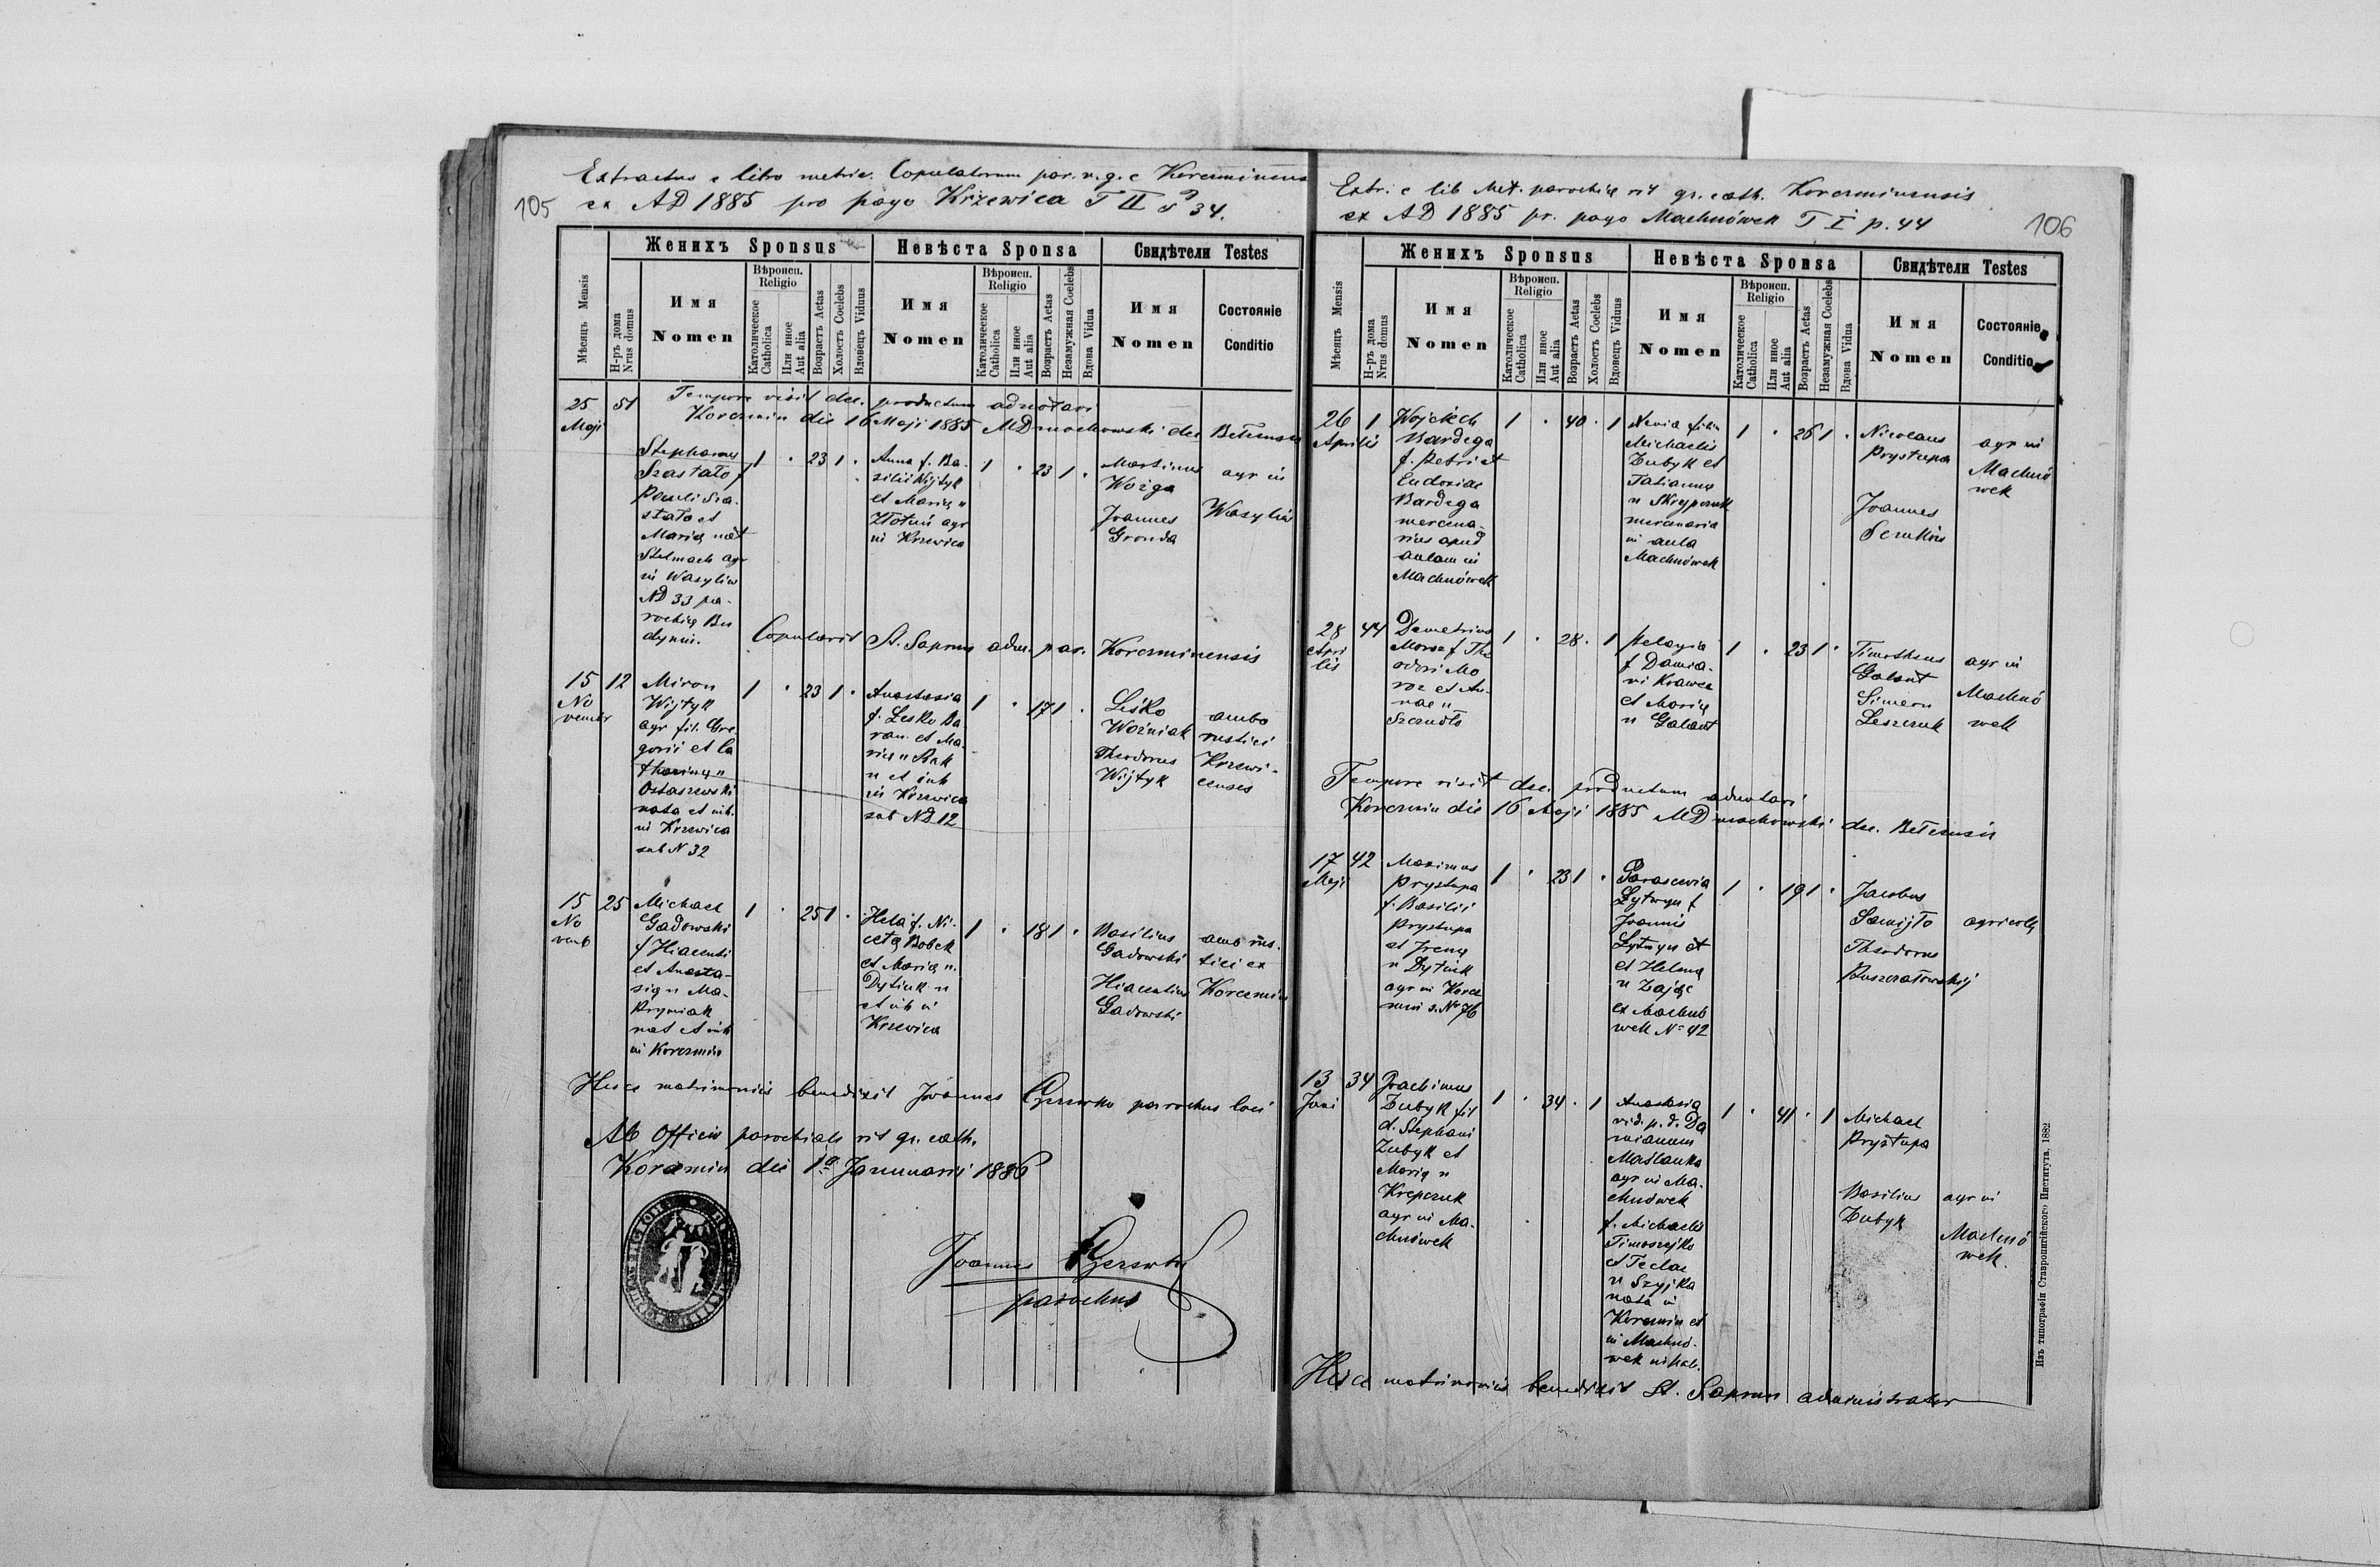 105
Extractus e libro metric. Copulatorum par. r. g. c Korczminens
ex AD 1885 pro pago Krzewica T II p 34.
Мѣсяцъ Mensis
Н-ръ дома Nrus domus
Женихъ Sponsus
Имя
Nomen
Вѣроисп.
Religio
Католическое
Catholica
Или иное
Aut alia
Возрастъ Aetas
Холостъ Coelebs
Вдовецъ Viduus
Невѣста Sponsa
Имя
Nomen
Вѣроисп.
Religio
Католическое
Catholica
Или иное
Aut alia
Возрастъ Aetas
Незамужная Coelebs
Вдова Vidua
Свидѣтели Testes
Имя
Nomen
Состояніе
Conditio
Tempore visit dec. productum adnotavi
Korczmin die 16 Maji 1885 MDmochowski dec Betzensis
25
Maji
51
Stephanus
Szastało f
Pauli Sza-
stało et
Mariæ nat
Stelmach agr
in Wasylów
ND 33 pa-
rochiæ Bu
dynin.
1 . 23 1 .
Anna f. Ba-
silii Wijtyk
et Mariæ n
Złotuń agr
in Krzewica
1 . 23 1 .
Martinus
Wozga
Joannes
Gronda
agr in
Wasylów
Copulavit St. Saprun adm. par. Korczminensis
15
No
vembr
12
Miron
Wijtyk
agr fil. Gre-
gorii et Ca
tharinæ n
Ostaszewski
nata et inh.
in Krzewica
sub N 32
1 . 23 1 .
Anastasia
f. Lesko Ba
ran. et Ma-
riæ n Rak
n et inh
in Krzewica
sub ND 12
1 . 17 1 .
Leśko
Woźniak
Theodorus
Wijtyk
ambo
rustici
Krzewi-
censes
15
No
vemb
25
Michael
Gadowski
f Hiacenti
et Anasta-
siæ n Ma-
Pryniak
nat et inh
in Korczmin
1 . 25 1 .
Hela f. Ni-
cetæ Bobek
et Mariæ n.
Dytiuk n
et inh in
Krzewica
1 . 18 1 .
Basilius
Gadowski
Hiacentius
Gadowski
ambo rus-
tici ex
Korczmin
Hisce matrimoniis benedixit Joannes parochus loci
Ab Officio parochiali rit gr. cath.
Korczmin die 1a Januarii 1886
Joannes
parochus
106
Extr. e lib Met. parochiæ rit gr. cath. Korczminensis
ex AD 1885 pr. pago Machnówek T I p. 44
Мѣсяцъ Mensis
Н-ръ дома Nrus domus
Женихъ Sponsus
Имя
Nomen
Вѣроисп.
Religio
Католическое
Catholica
Или иное
Aut alia
Возрастъ Aetas
Холостъ Coelebs
Вдовецъ Viduus
Невѣста Sponsa
Имя
Nomen
Вѣроисп.
Religio
Католическое
Catholica
Или иное
Aut alia
Возрастъ Aetas
Незамужная Coelebs
Вдова Vidua
Свидѣтели Testes
Имя
Nomen
Состояніе
Conditio
26
Aprilis
1
Wojciech
Bardega
f. Petri et
Eudoxiae
Bardega
mercena-
rius apud
aulam in
Machnówek
1 . 40 . 1
Xenia filia
Michaelis
Zubyk et
Tatianna
n Skrypczuk
mercenaria
in aula
Machnówek
1 . 26 1 .
Nicolaus
Prystupa
Joannes
Senków
agr in
Machnó
wek
28
Apri
lis
44
Demetrius
Moroz f The
odori Mo
roz et An-
nae n
Szczudło
1 . 28 . 1
Pelagia
f Damia-
ni Krawcz
et Mariæ
n Galant
1 . 23 1 .
Timotheus
Galant
Simeon
Leszczuk
agr in
Machnó
wek
Tempore visit dec. productum adnotavi
Korczmin die 16 Maji 1885 MDmochowski dec. Betzensis
17
Maji
42
Maximus
Prystupa
f. Basilii
Prystupa
et Irenæ
n Dytiuk
agr in Korcz
min s. No 76
1 . 23 1 .
Parascevia
Lytwyn f
Joannis
Lytwyn et
et Helenæ
n Zając
ex Machnó
wek No 42
1 . 19 1 .
Jacobus
Samijło
Theodorus
Puszczałowskij
agricolæ
13
Juni
34
Joachimus
Zubyk fil
d. Stephani
Zubyk et
Mariæ n
Krepczuk
agr in Ma-
chnówek
1 . 34 . 1
Anastasia
vid. p. d. Da
mianum
Maślanka
agr in Ma-
chnówek
f. Michaelis
Timoszejko
et Teclae
n Szyjka
nata in
Korczmin et
in Machnó-
wek inhab.
1 . 41 . 1
Michael
Prystupa
Basilius
Zubyk
agr in
Machnó
wek.
Hisce matrimoniis benedixit St. Saprun administrator
Изъ типографіи Ставропигійского Института. 1882